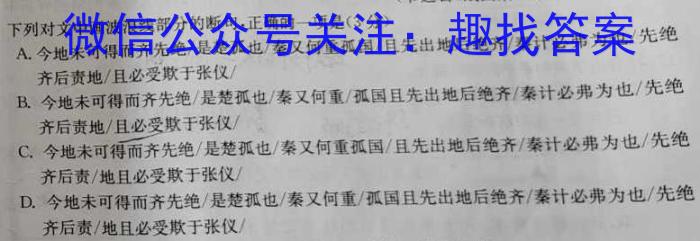 下列对文 部分的断句,正确的一项是(3分)
微信公众号关注:趣找答案
A. 今地未可得而齐先绝/是楚孤也/秦又何重孤国/且先出地后绝齐/秦计必弗为也/先绝
齐后责地/且必受欺于张仪/
B. 今地未可得而齐先绝/是楚孤也/秦又何重/孤国且先出地后绝齐/秦计必弗为也/先绝
齐后责地/且必受欺于张仪/
C. 今地未可得而齐先绝/是楚孤也/秦又何重孤国/且先出地后绝齐/秦计必弗为也/先绝
齐后责/地且必受欺于张仪/
D. 今地未可得而齐先绝/是楚孤也/秦又何重/孤国且先出地后绝齐/秦计必弗为也/先绝
齐后责/地且必受欺于张仪/